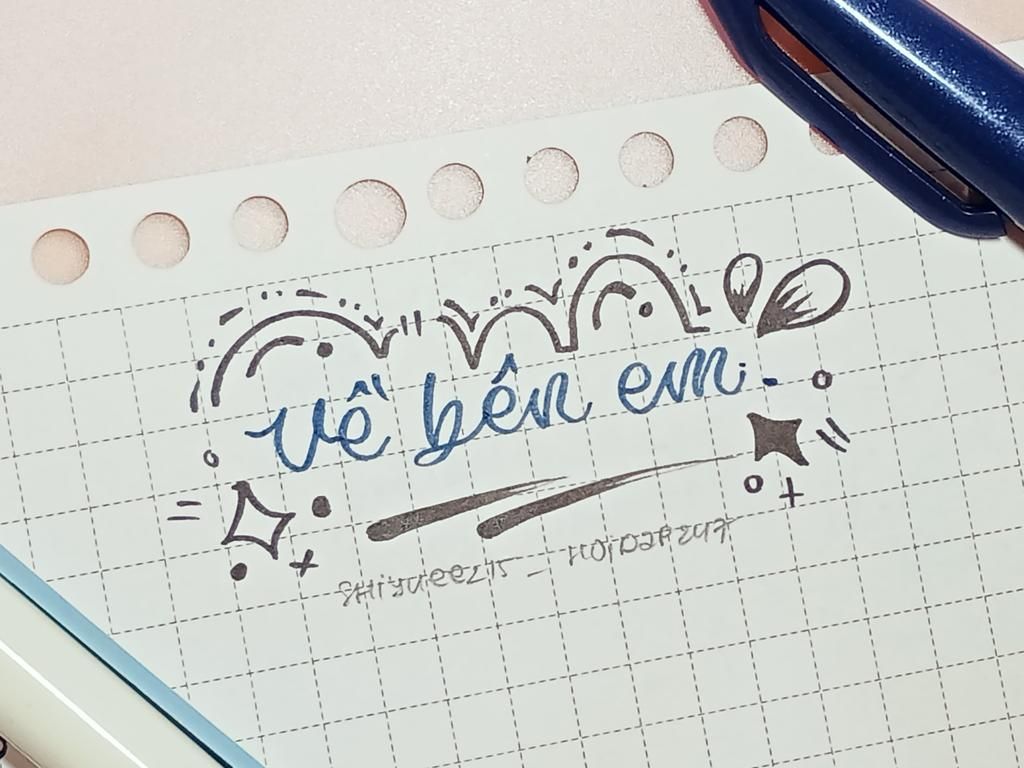 về bên em.
SHiyuee215 _ HOiDAP247